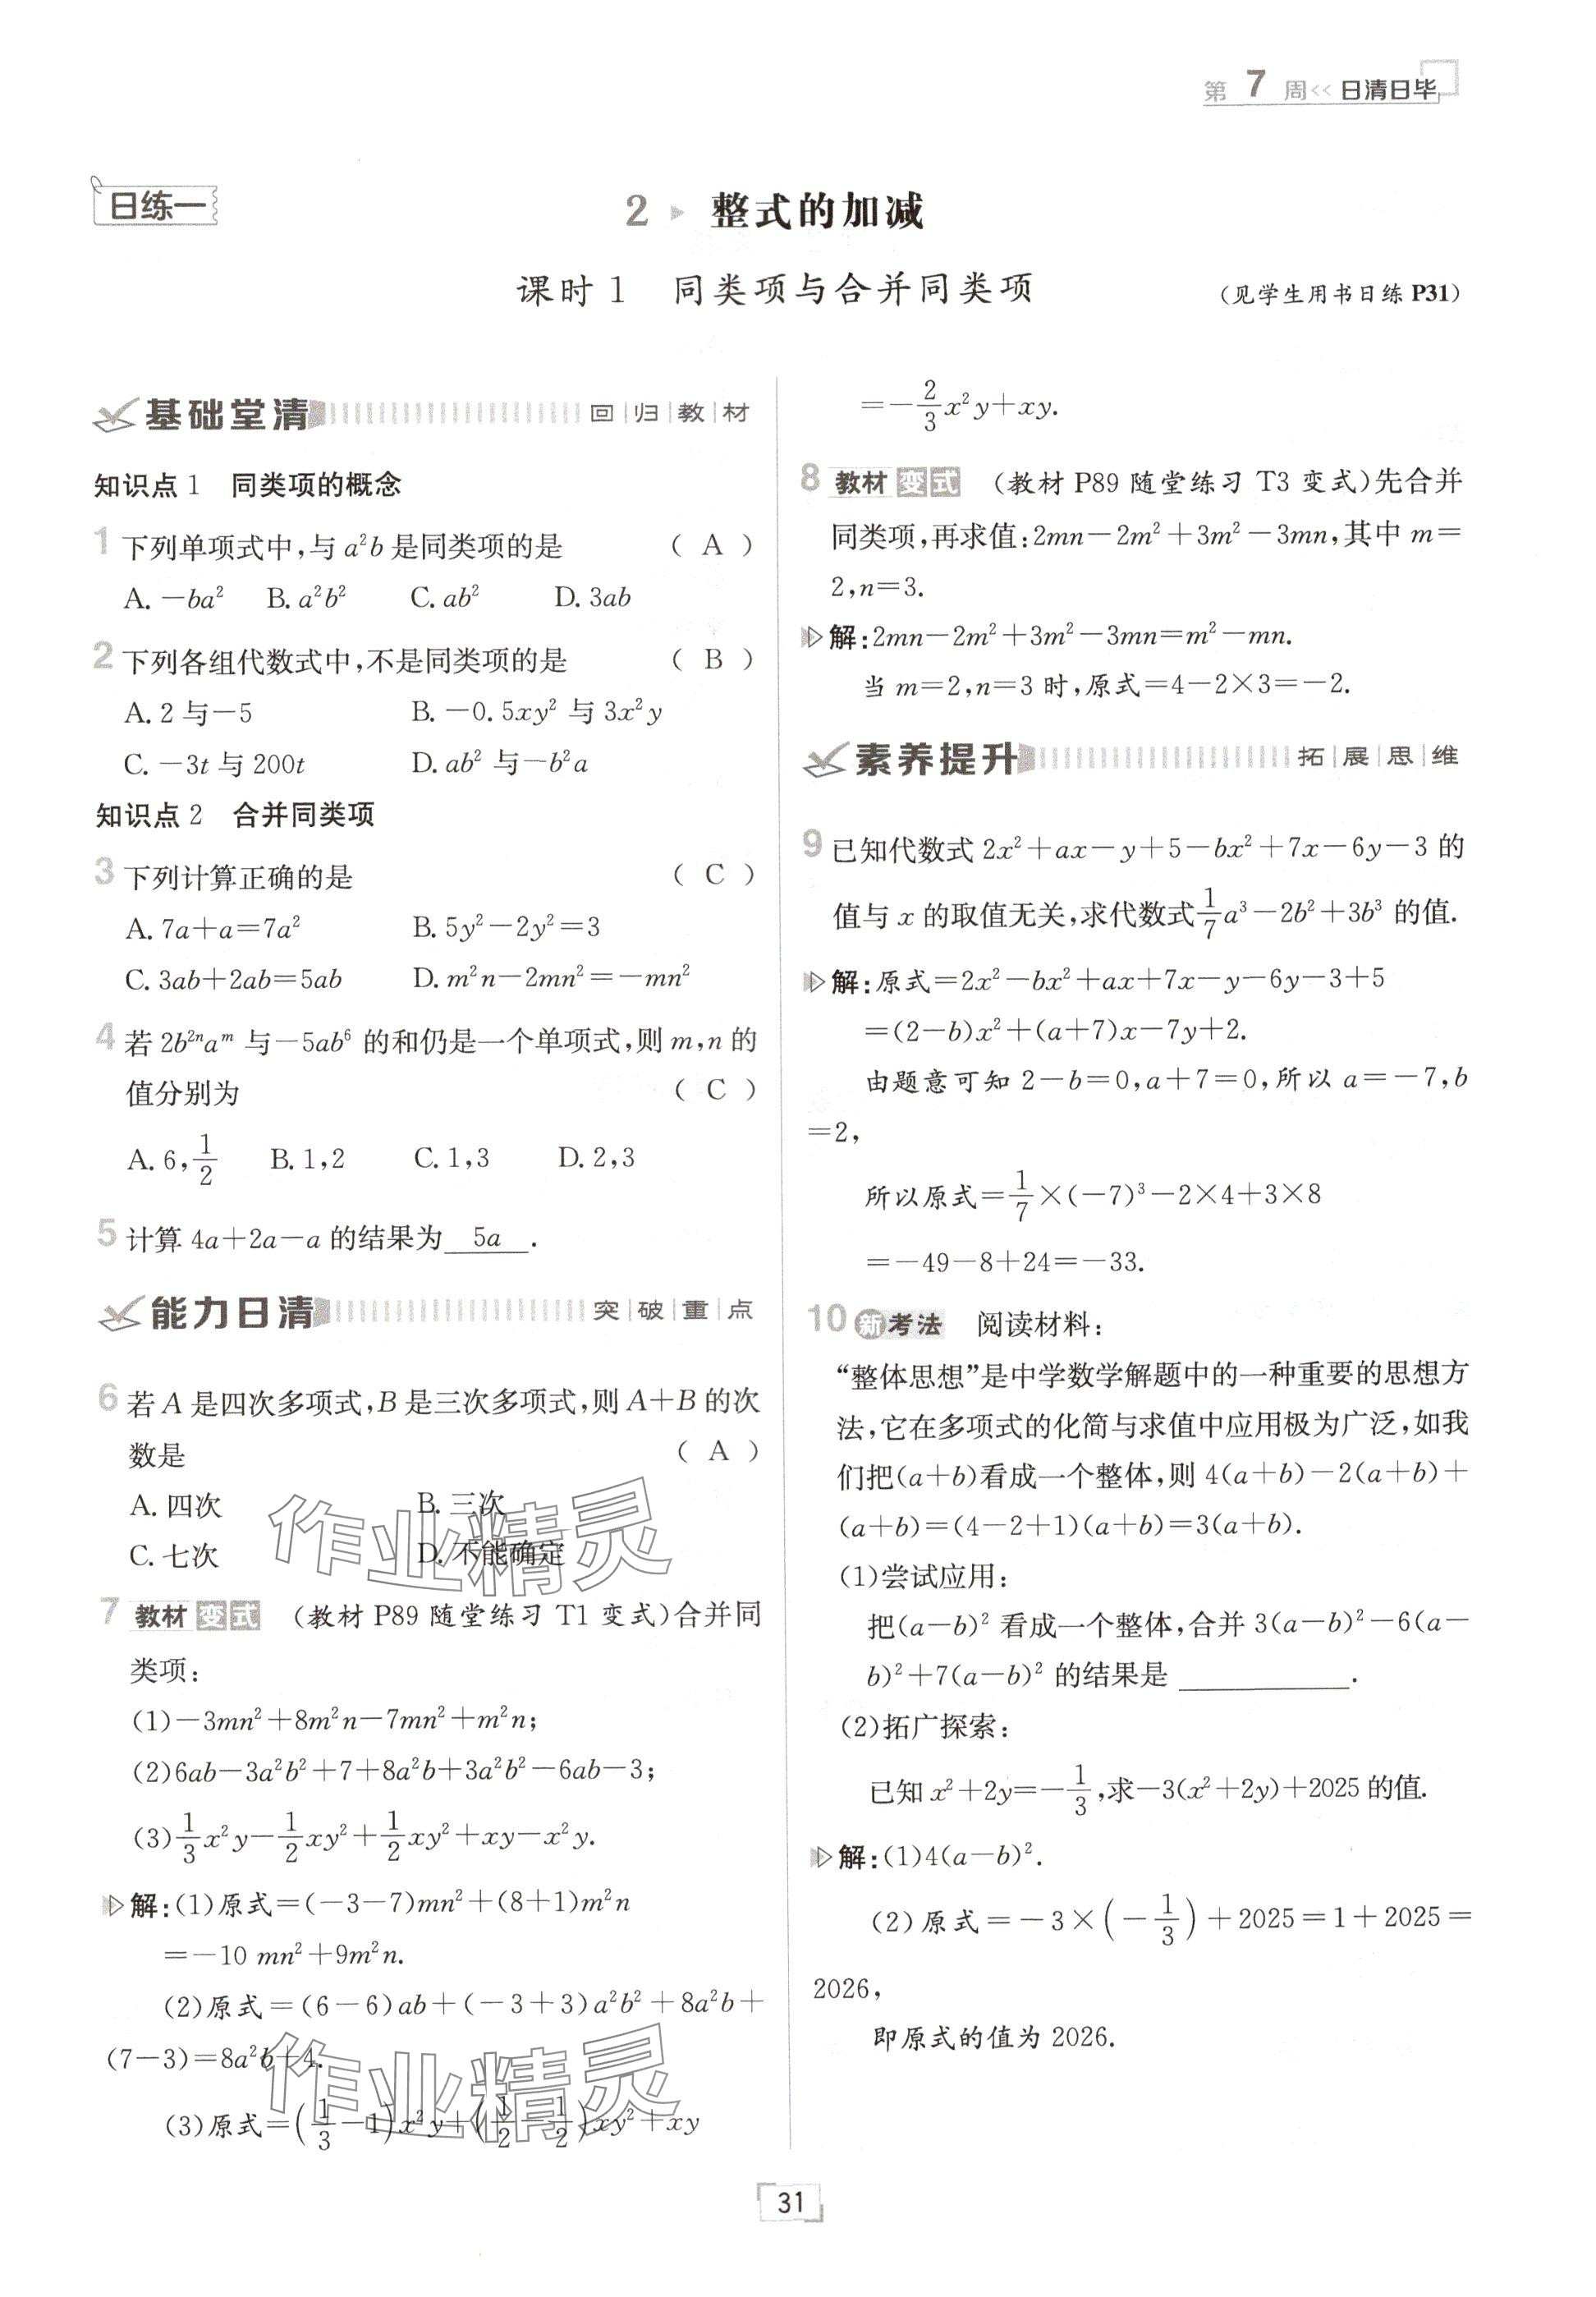 第 7 周<< 日清日毕
日练一
2 ▸ 整式的加减
课时 1 同类项与合并同类项 (见学生用书日练 P31)
基础堂清 回|归|教|材
知识点 1 同类项的概念
1 下列单项式中,与 a²b 是同类项的是 ( A )
A. －ba² B. a²b² C. ab² D. 3ab
2 下列各组代数式中,不是同类项的是 ( B )
A. 2 与－5 B. －0.5xy² 与 3x²y
C. －3t 与 200t D. ab² 与－b²a
知识点 2 合并同类项
3 下列计算正确的是 ( C )
A. 7a＋a＝7a² B. 5y²－2y²＝3
C. 3ab＋2ab＝5ab D. m²n－2mn²＝－mn²
4 若 2b²ⁿaᵐ 与－5ab⁶ 的和仍是一个单项式,则 m,n 的
值分别为 ( C )
A. 6,1/2 B. 1,2 C. 1,3 D. 2,3
5 计算 4a＋2a－a 的结果为 5a .
能力日清 突|破|重|点
6 若 A 是四次多项式,B 是三次多项式,则 A＋B 的次
数是 ( A )
A. 四次 B. 三次
C. 七次 D. 不能确定
7 教材 变式 (教材 P89 随堂练习 T1 变式)合并同
类项:
(1)－3mn²＋8m²n－7mn²＋m²n;
(2)6ab－3a²b²＋7＋8a²b＋3a²b²－6ab－3;
(3)1/3x²y－1/2xy²＋1/2xy²＋xy－x²y.
解:(1)原式＝(－3－7)mn²＋(8＋1)m²n
＝－10 mn²＋9m²n.
(2)原式＝(6－6)ab＋(－3＋3)a²b²＋8a²b＋
(7－3)＝8a²b＋4.
(3)原式＝(1/3－1)x²y＋(1/2－1/2)xy²＋xy
＝－2/3x²y＋xy.
8 教材 变式 (教材 P89 随堂练习 T3 变式)先合并
同类项,再求值:2mn－2m²＋3m²－3mn,其中 m＝
2,n＝3.
解:2mn－2m²＋3m²－3mn＝m²－mn.
当 m＝2,n＝3 时,原式＝4－2×3＝－2.
素养提升 拓|展|思|维
9 已知代数式 2x²＋ax－y＋5－bx²＋7x－6y－3 的
值与 x 的取值无关,求代数式1/7a³－2b²＋3b³ 的值.
解:原式＝2x²－bx²＋ax＋7x－y－6y－3＋5
＝(2－b)x²＋(a＋7)x－7y＋2.
由题意可知 2－b＝0,a＋7＝0,所以 a＝－7,b
＝2,
所以原式＝1/7×(－7)³－2×4＋3×8
＝－49－8＋24＝－33.
10 新考法 阅读材料:
“整体思想”是中学数学解题中的一种重要的思想方
法,它在多项式的化简与求值中应用极为广泛,如我
们把(a＋b)看成一个整体,则 4(a＋b)－2(a＋b)＋
(a＋b)＝(4－2＋1)(a＋b)＝3(a＋b).
(1)尝试应用:
把(a－b)² 看成一个整体,合并 3(a－b)²－6(a－
b)²＋7(a－b)² 的结果是 ________.
(2)拓广探索:
已知 x²＋2y＝－1/3,求－3(x²＋2y)＋2025 的值.
解:(1)4(a－b)².
(2)原式＝－3×(－1/3)＋2025＝1＋2025＝
2026,
即原式的值为 2026.
作业精灵
作业精灵
31